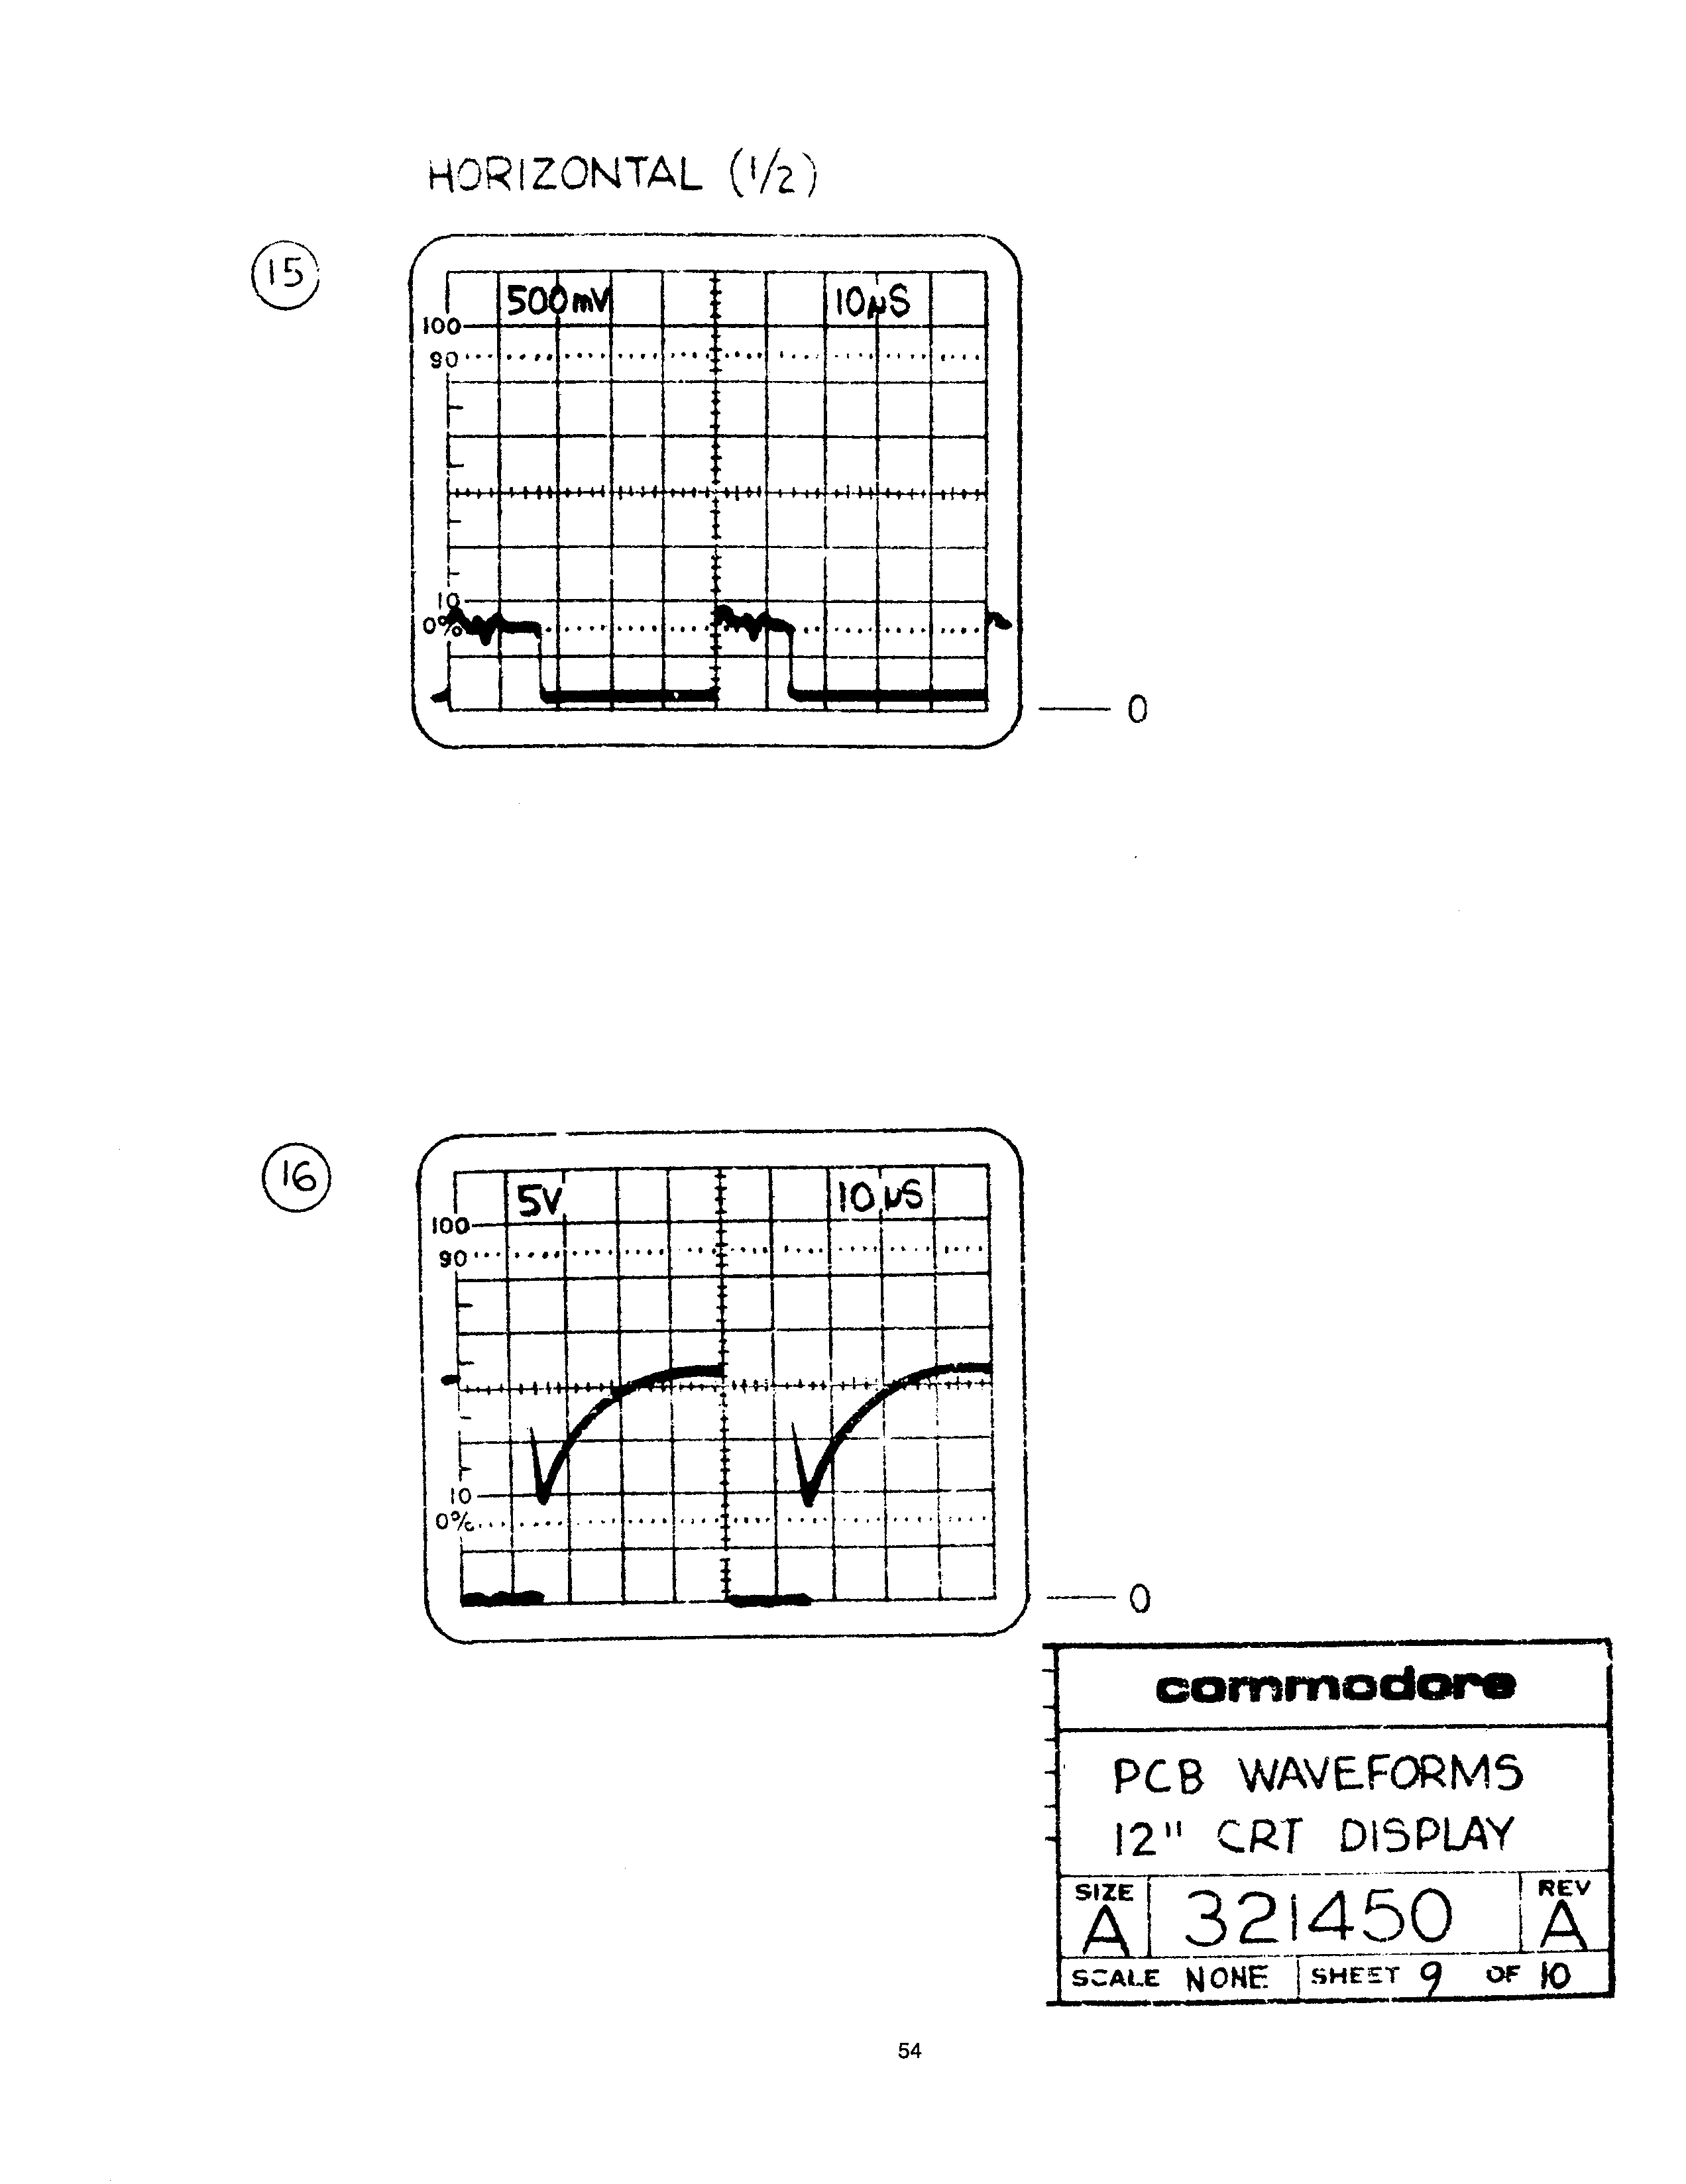 HORIZONTAL (1/2)
15
500mV 10µS
100
90
10
0%
0
16
5V 10µS
100
90
10
0%
0
commodore
PCB WAVEFORMS
12" CRT DISPLAY
SIZE A 321450 REV A
SCALE NONE SHEET 9 OF 10
54